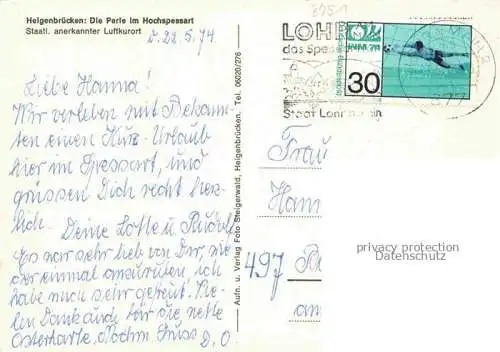 Heigenbrücken: Die Perle im Hochspessart
Staatl. anerkannter Luftkurort
d. 22.5.74
Liebe Hanna!
Wir verleben mit Bekann-
ten einen Kurz-Urlaub
hier im Spessart, und
grüssen Dich recht herz-
lich. Deine Lotte u. Rudolf
Es war sehr lieb von Dir, mich
oder einmal anzurufen, ich
habe mich sehr gefreut. Vie-
len Dank auch für die nette
Osterkarte. Nochm. Gruss D. O.
Aufn. u. Verlag Foto Steigerwald, Heigenbrücken, Tel. 06020/276
LOHR
das Spe
Stadt Lohr Main
30
Frau
Hann
497
privacy protection
Datenschutz
am